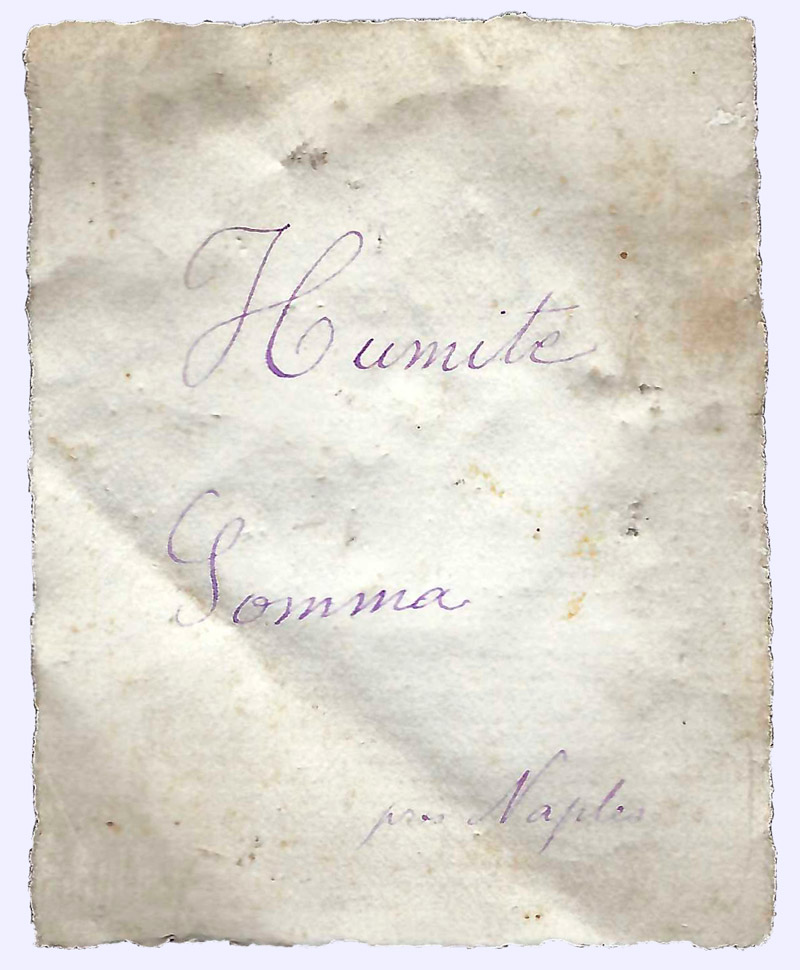 Humite
Somma
pres Naples